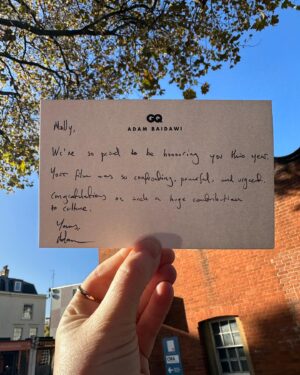 GQ
ADAM BAIDAWI
Molly,
We're so proud to be honouring you this year.
Your film was so captivating, powerful, and urgent.
Congratulations on such a huge contribution
to culture.
Yours,
Adam